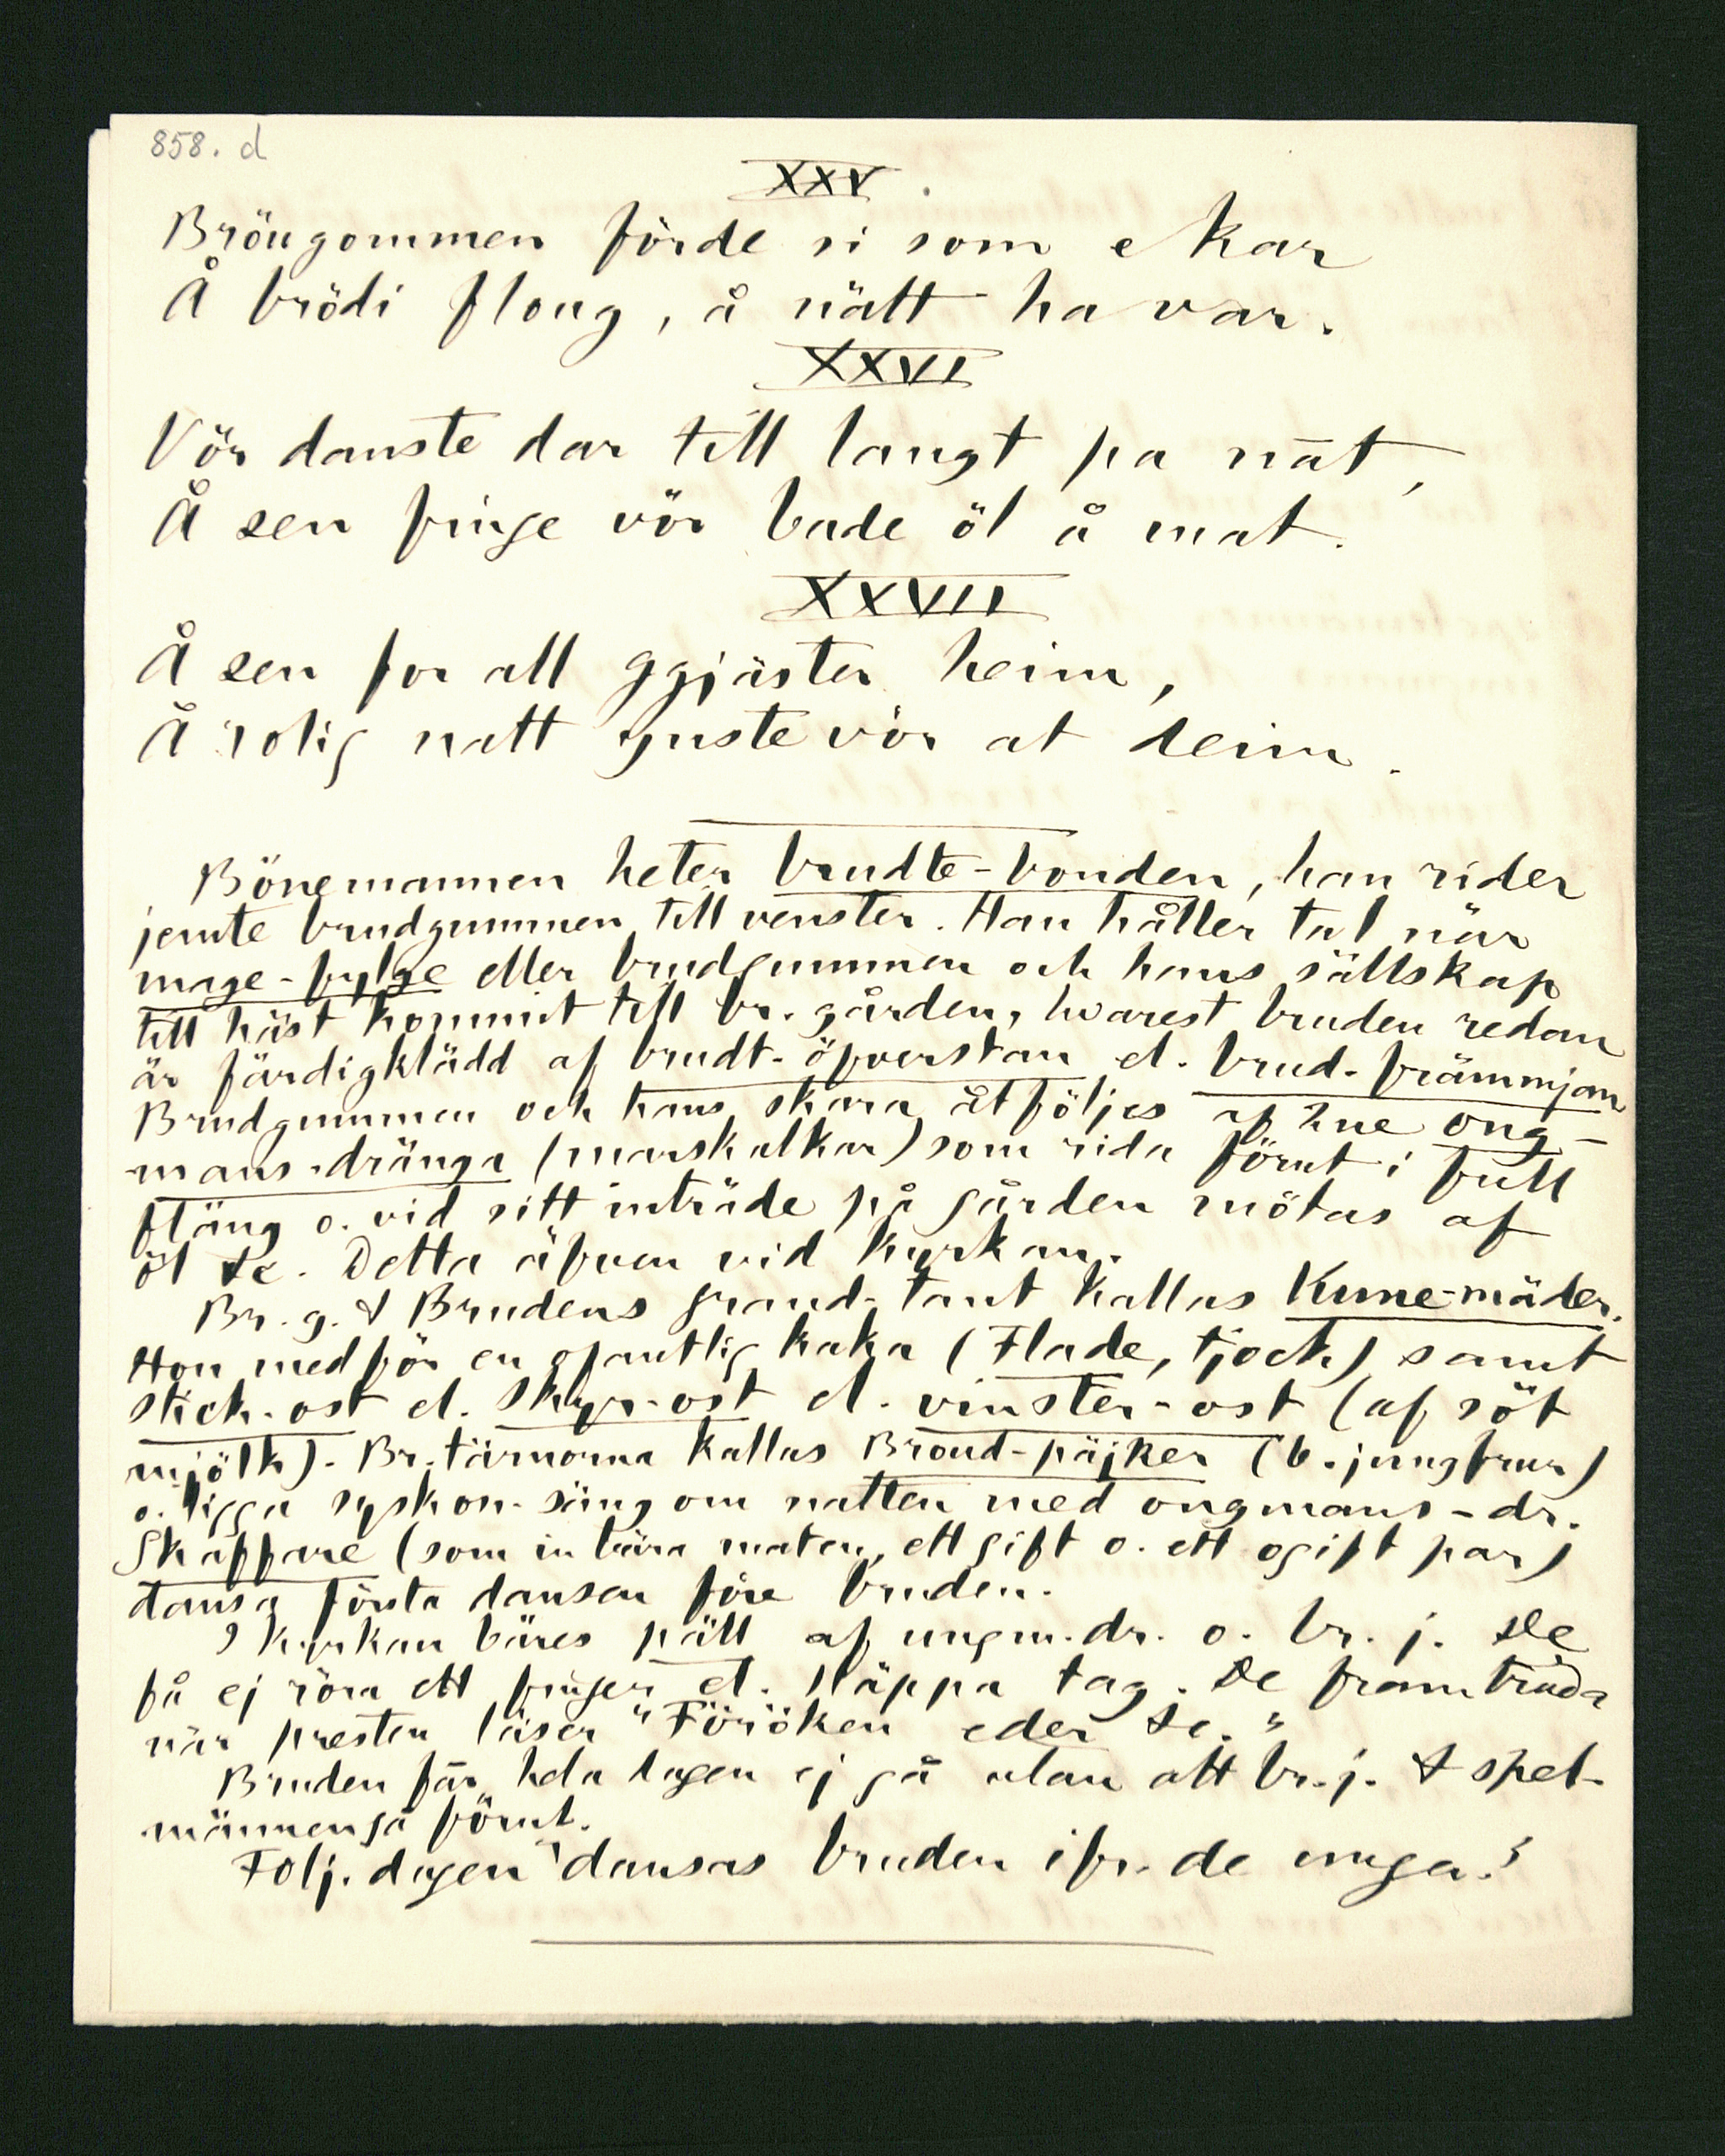 858. d
XXV.
Bröugommen förde si som e kar
Å brödi floug, å nätt ha var.
XXVI
Vör danste dar till langt pa nat,
Å sen finge vör bade öl å mat.
XXVII
Å sen for all ggjäster heim,
Å rolig natt ynste vör at deim.
Bönemannen heter brudte-bonden, han rider
jemte brudgummen till venster. Han håller tal när
mage-fylge eller brudgummen och hans sällskap
till häst kommit till br. gården, hvarest bruden redan
är färdigklädd af brudt-öfverstan el. brud-främmjan
Brudgummen och hans skara åtföljes af 2ne ong-
mans-dränga (marskalkar) som rida förut i full
fläng o. vid sitt inträde på gården mötas af
öl &c. Detta äfven vid kyrkan.
Br. g. & Brudens grand-tant kallas Kune-mäder.
Hon medför en ofantlig kaka (Flade, tjock) samt
stick-ost el. Skyr-ost el. vinster-ost (af söt
mjölk). Br. tärnorna kallas Broud-päjker (b. jungfrur)
o. ligga syskon-säng om natten med ongmans-dr.
Skaffare (som inbära maten, ett gift o. ett ogift par)
dansa första dansen före bruden.
I kyrkan bäres päll af ungm. dr. o. br. j. De
få ej röra ett finger el. släppa tag. De framträda
när presten läser "Föröken eder &c."
Bruden får hela dagen ej gå utan att br. j. & spel-
männen gå förut.
Följ. dagen "dansas bruden ifr. de unga."